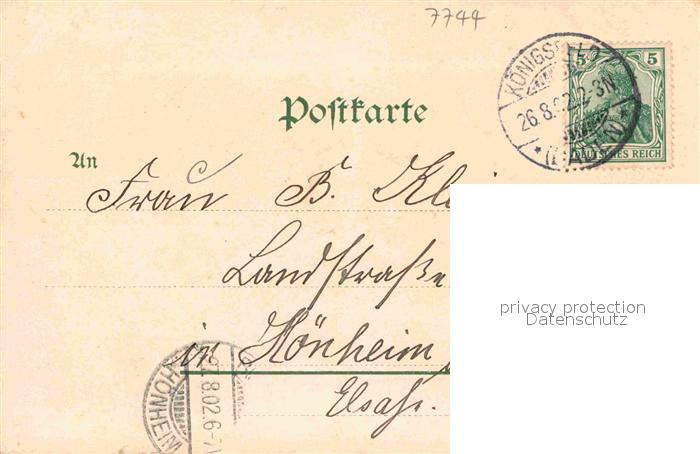 7744
KÖNIGSFELD
26.8.02.2-3N.
* (BADEN) *
5 5
DEUTSCHES REICH
Postkarte
An
Frau B. Kl
Landstraße
in Hönheim
Elsaß.
HÖNHEIM
8.02.6-7
privacy protection
Datenschutz